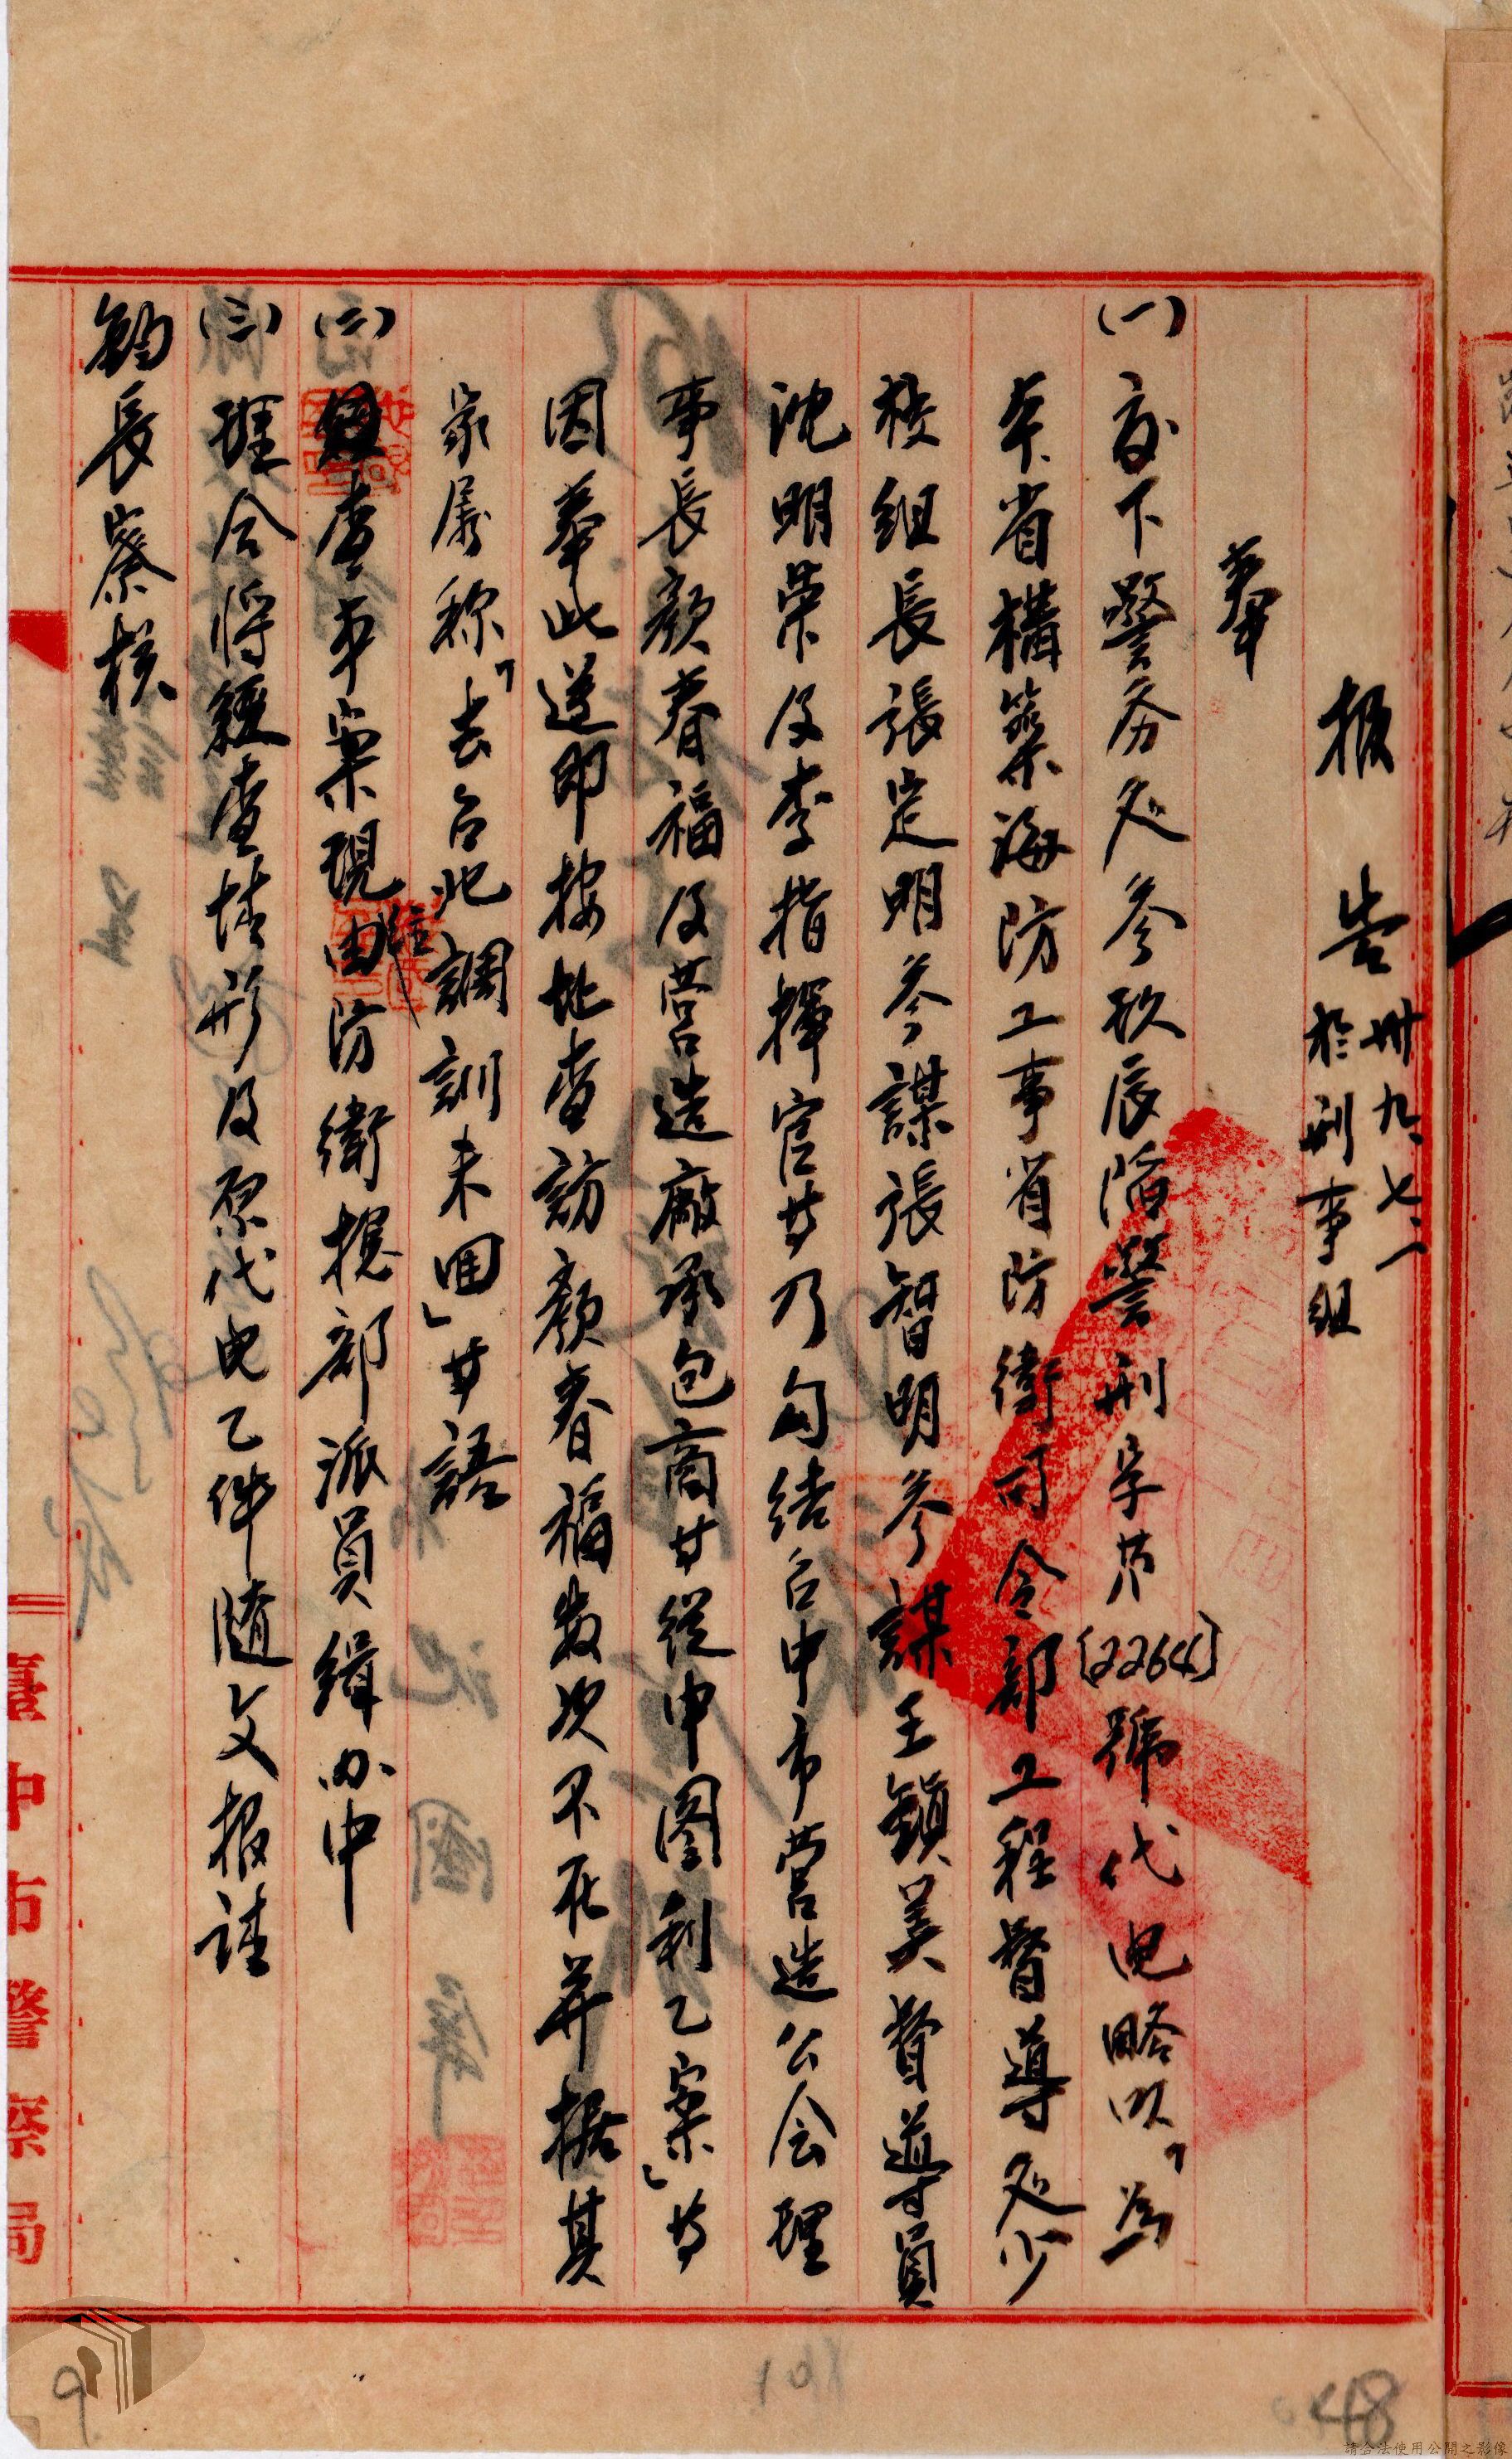 報告 卅九、七、一
於刑事組
奉
(一)交下警务处参玖辰陷警刑字第(2264)號代电略以「為
本省構築海防工事省防衛司令部工程督導处少
校組長張定明参謀張智明参謀王鎮美督導員
沈明荣及李指揮官等乃勾结台中市营造公会理
事長顏春福及营造廠承包商等從中图利乙案」等
因奉此遵即按址查訪顏春福数次不在并据其
家属称「去台北調訓未回」等語
(二)查本案現由防衛總部派員缉办中
(三)理合將經查情形及原代电乙件隨文报請
鈞長察核
臺中市警察局
101
48
9
請合法使用公開之影像